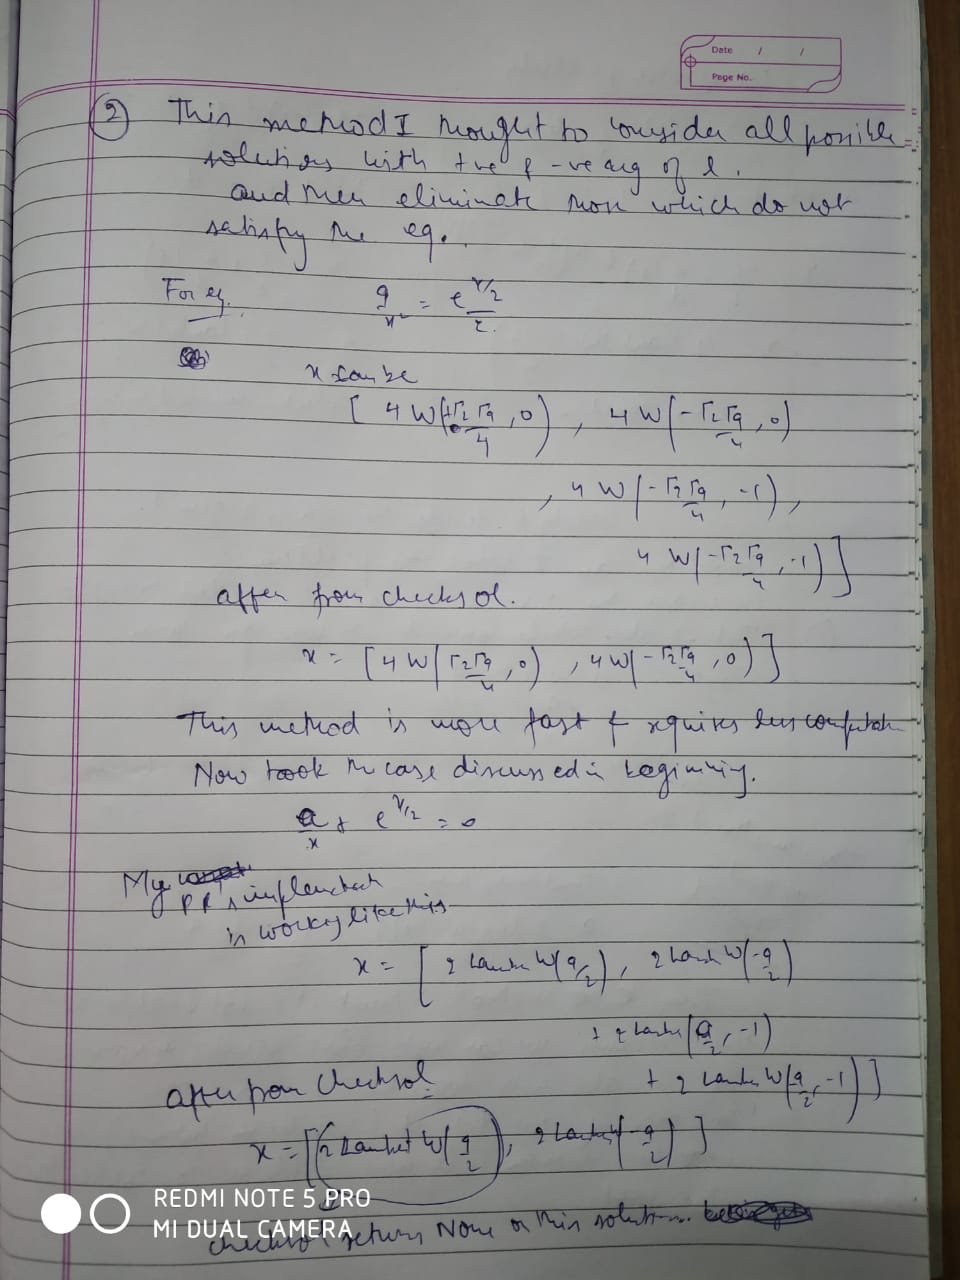 Date / /
Page No.
2 This method I thought to consider all possible
solutions with +ve & -ve arg of l.
and then eliminate those which do not
satisfy the eq.
For eg. 9/x² = e^x/2 / 2.
x can be
[ 4 W(+√2√9/4, 0), 4 W(-√2√9/4, 0)
, 4 W(-√2√9/4, -1),
4 W(-√2√9/4, -1)]
after from checksol.
x = [4 W(√2√9/4, 0), 4 W(-√2√9/4, 0)]
This method is more fast & requires less
Now took the case discussed in beginning.
a/x + e^x/2 = 0
My
PR's
is working like this
x = [ 2 LambertW(a/2), 2 LambertW(-a/2)
, 2 Lambert(a/2, -1)
, 2 LambertW(a/2, -1)]
after from checksol
x = [(2 LambertW(a/2)), 2 LambertW(-a/2)]
checksol return None on this solution.
REDMI NOTE 5 PRO
MI DUAL CAMERA